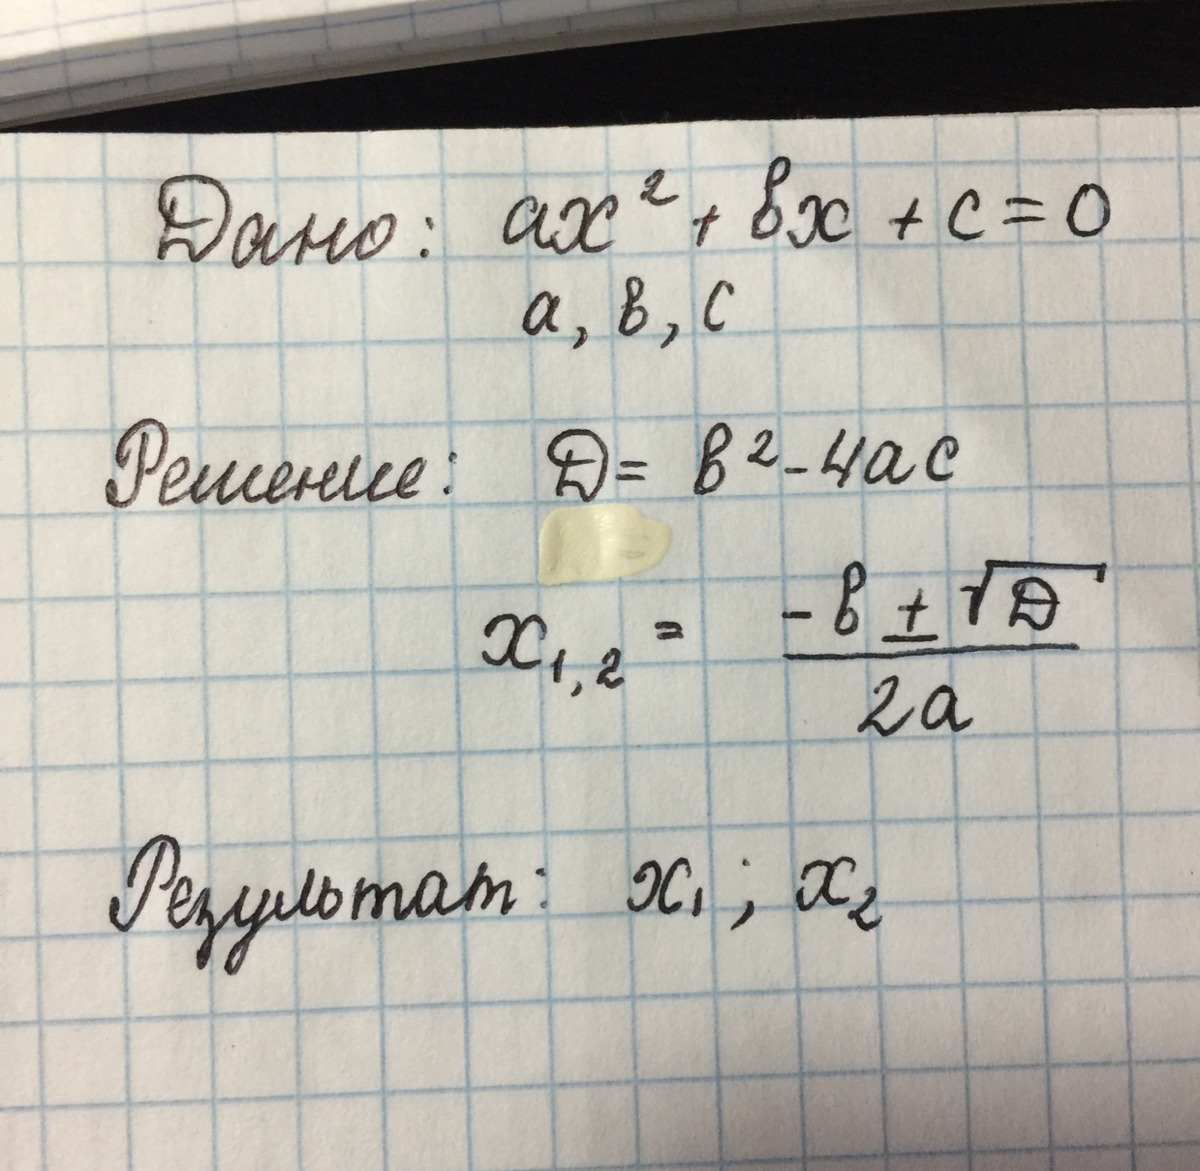 Дано: ax² + bx + c = 0
a, b, c
Решение: D = b² - 4ac
x₁,₂ = (-b ± √D) / 2a
Результат: x₁ ; x₂